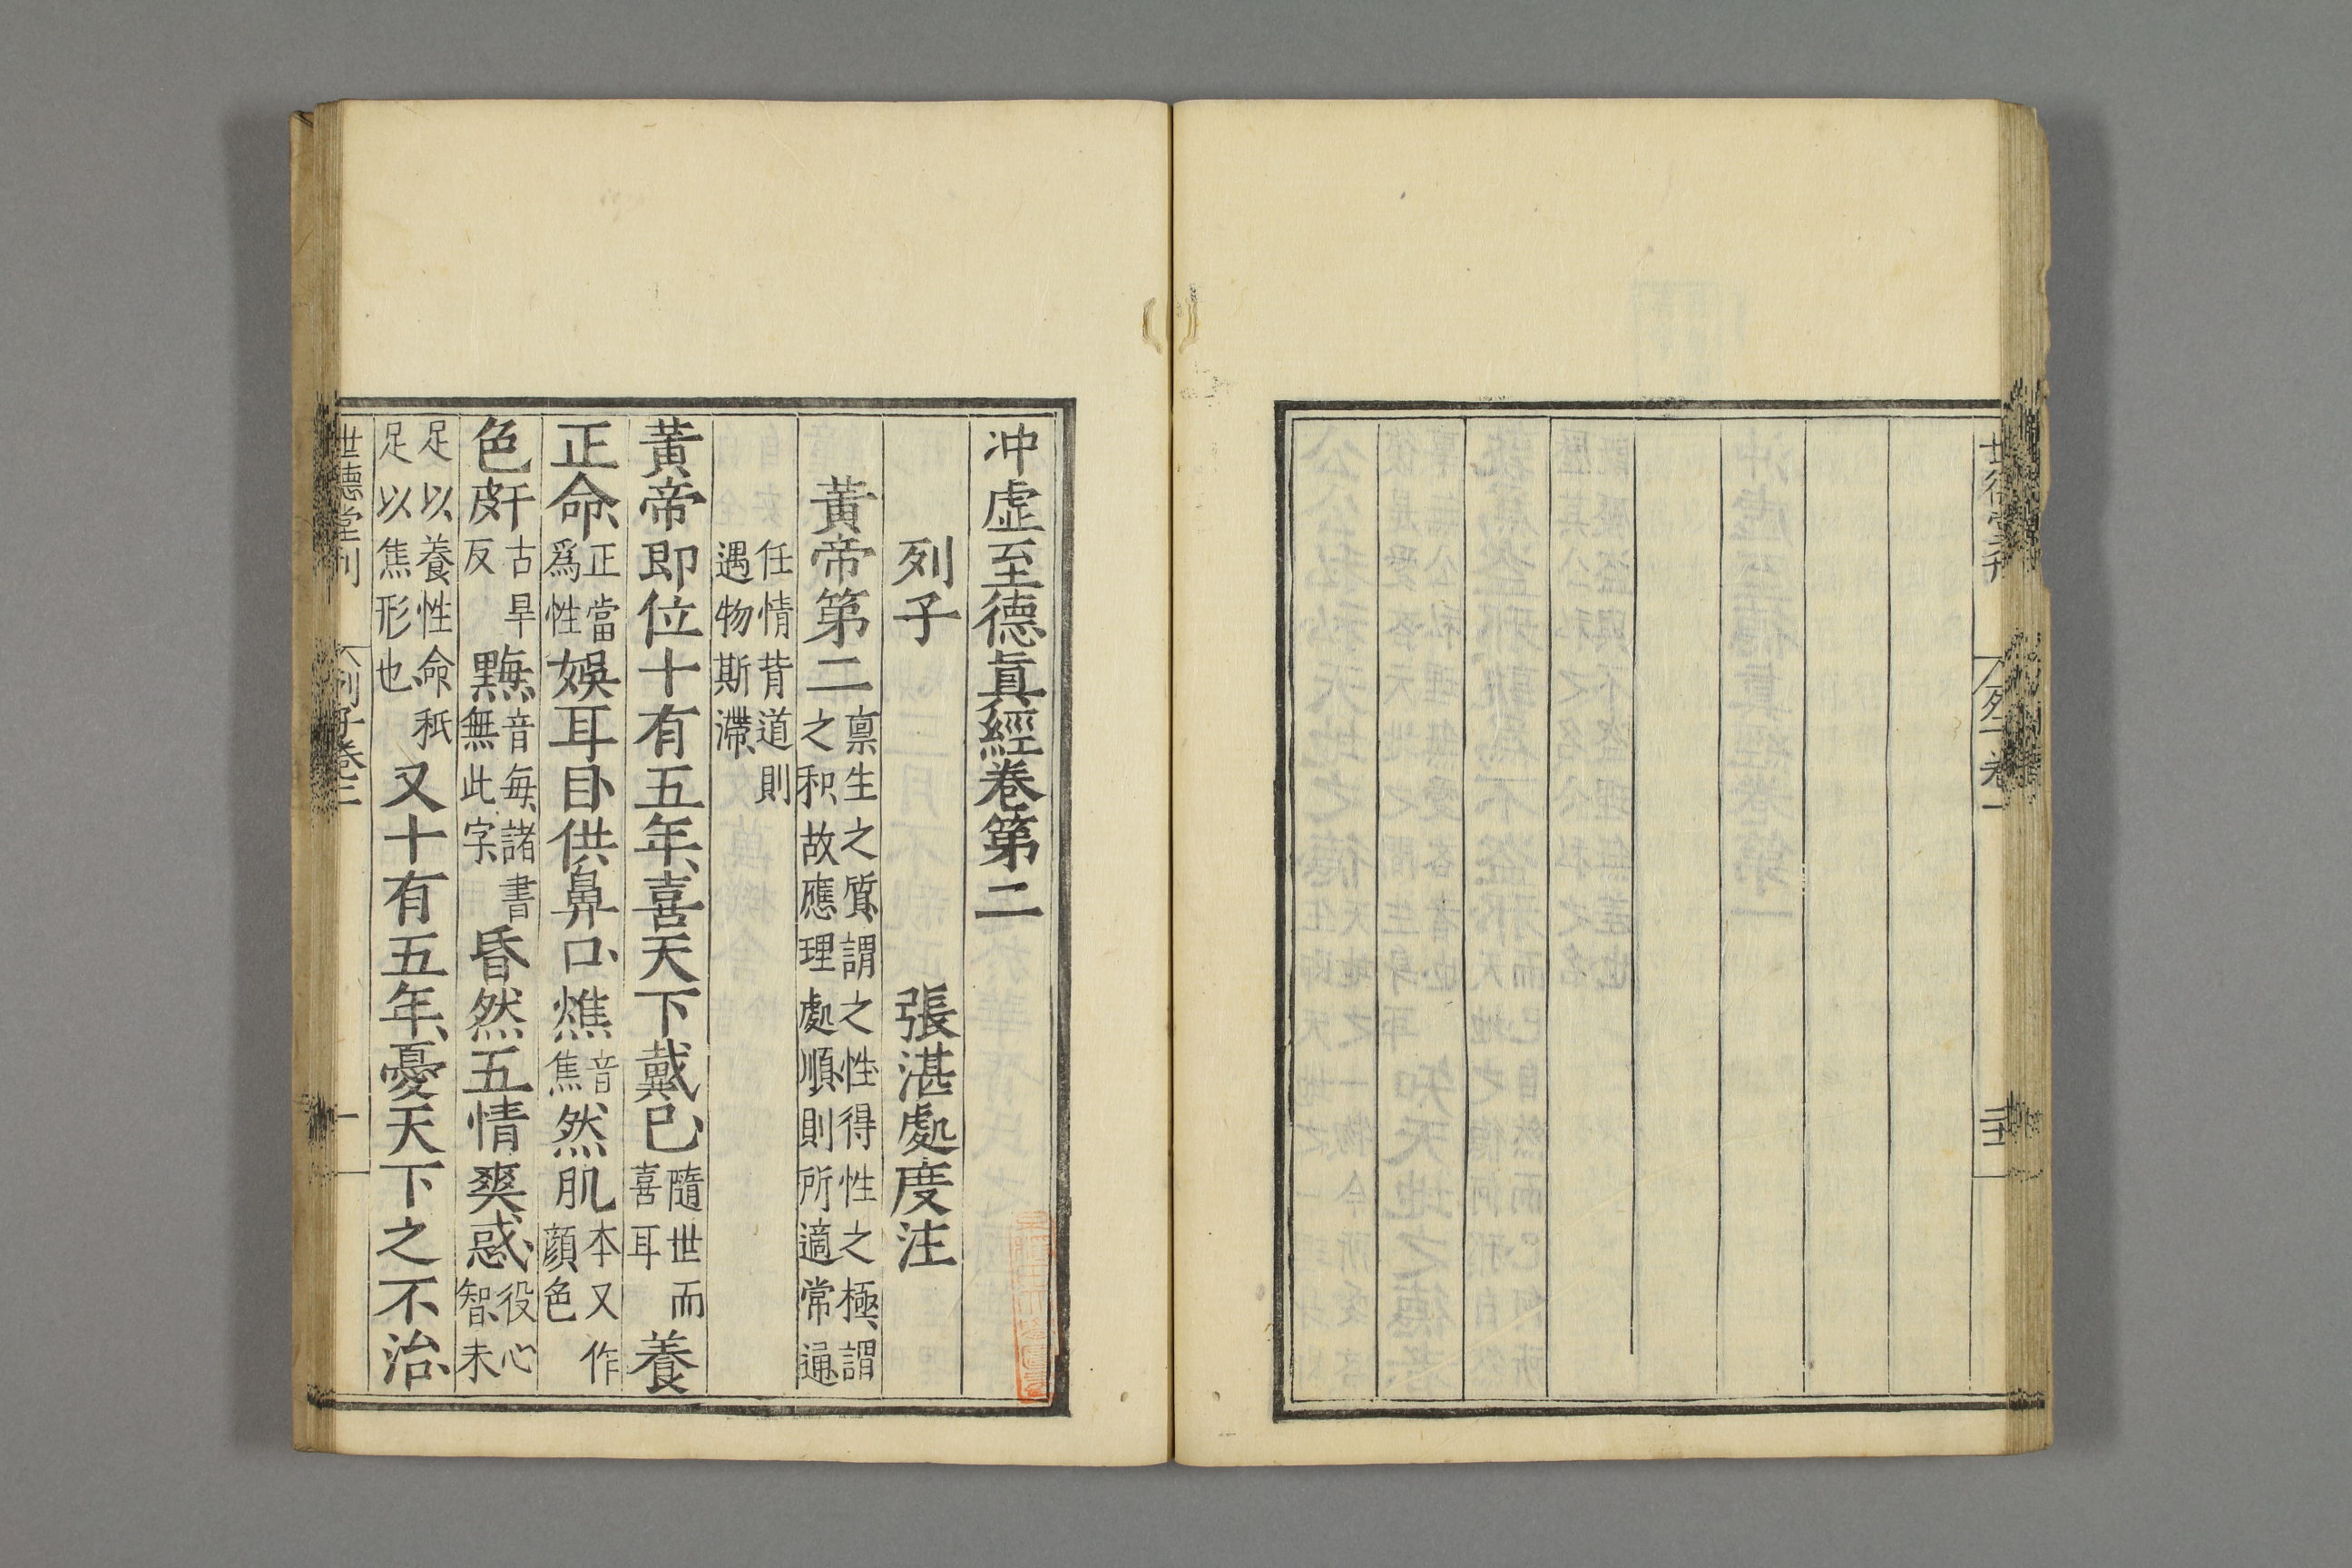 冲虚至德眞經卷第二
列子　張湛處度注
黃帝第二稟生之質謂之性得性之極謂
之和故應理處順則所適常通
任情背道則
遇物斯滯
黃帝即位十有五年喜天下戴已隨世而
喜耳養
正命正當
爲性娛耳目供鼻口燋音
焦然肌本又作
顔色
色皯古旱
反䵟音每諸書
無此字昏然五情爽惑役心
智未
足以養性命秖
足以焦形也又十有五年憂天下之不治
世德堂刊
列子卷二
一